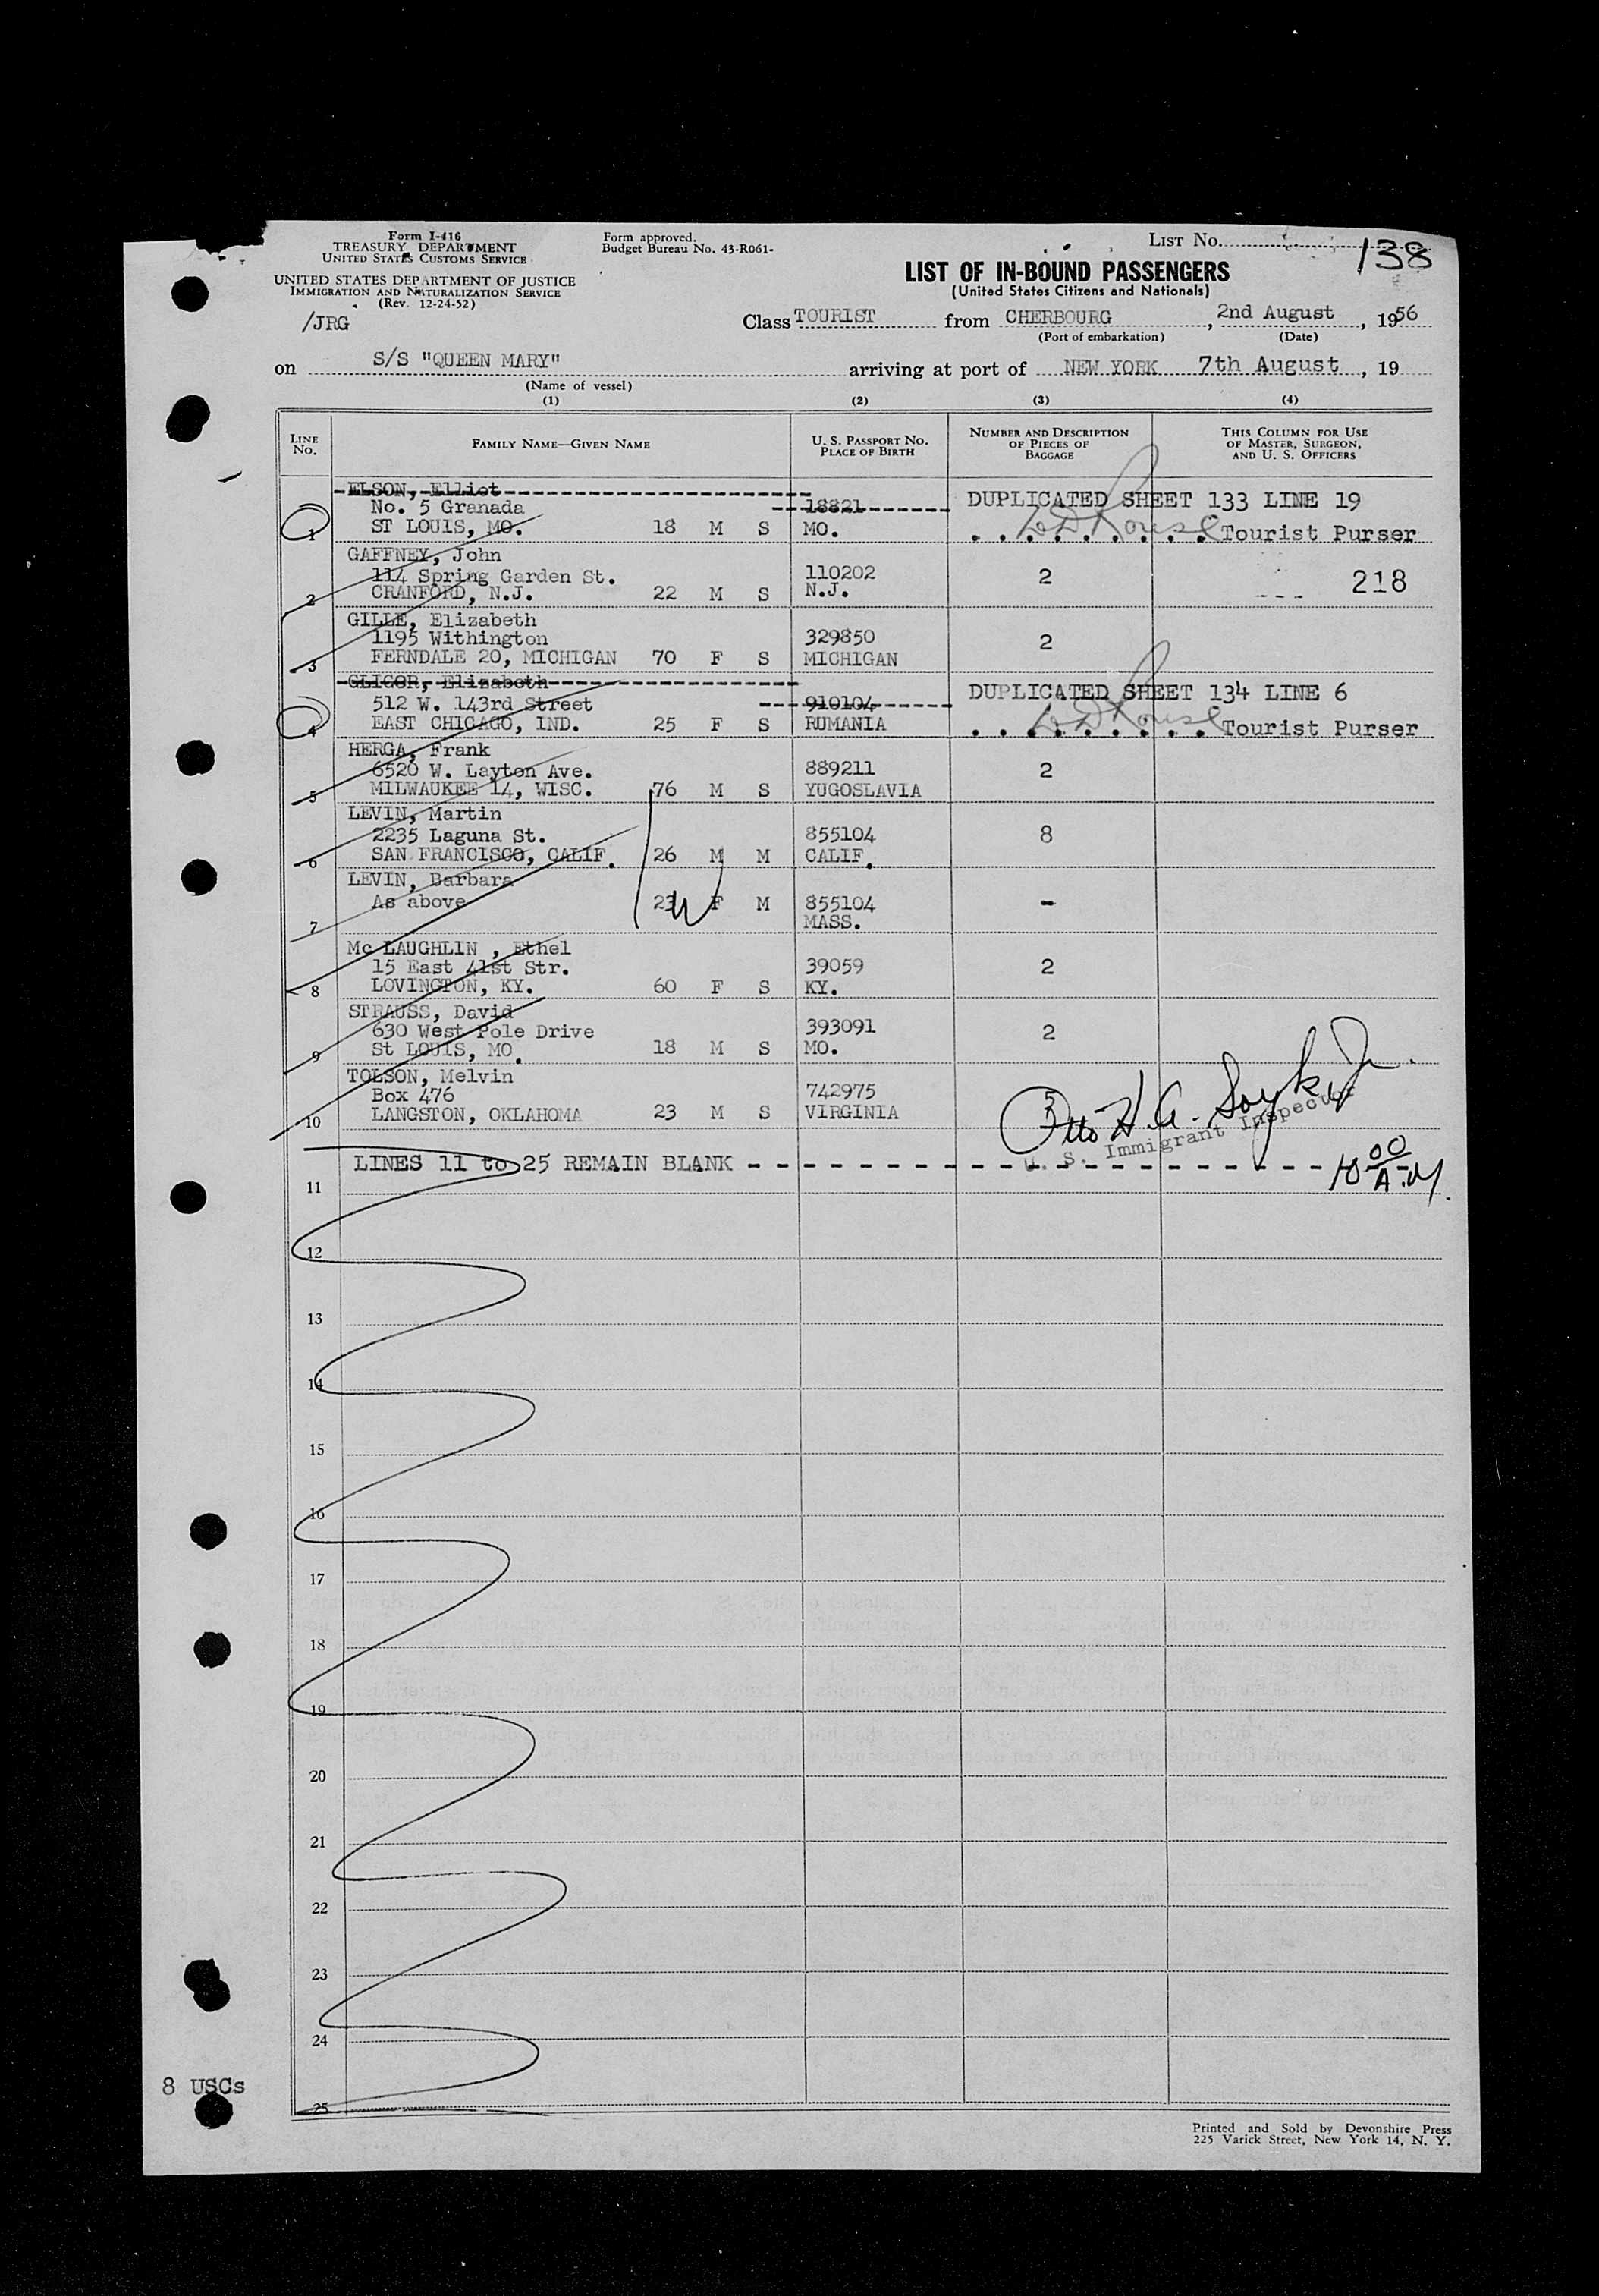 Form I-416
TREASURY DEPARTMENT
UNITED STATES CUSTOMS SERVICE
UNITED STATES DEPARTMENT OF JUSTICE
IMMIGRATION AND NATURALIZATION SERVICE
(Rev. 12-24-52)
/JRG
Form approved.
Budget Bureau No. 43-R061-
LIST No. 138
LIST OF IN-BOUND PASSENGERS
(United States Citizens and Nationals)
Class TOURIST from CHERBOURG, 2nd August, 1956
(Port of embarkation) (Date)
on S/S "QUEEN MARY" arriving at port of NEW YORK 7th August, 19
(Name of vessel)
(1) (2) (3) (4)
LINE No. FAMILY NAME—GIVEN NAME U. S. PASSPORT No. PLACE OF BIRTH NUMBER AND DESCRIPTION OF PIECES OF BAGGAGE THIS COLUMN FOR USE OF MASTER, SURGEON, AND U. S. OFFICERS
ELSON, Elliot 18821 DUPLICATED SHEET 133 LINE 19
No. 5 Granada
1 ST LOUIS, MO. 18 M S MO. Tourist Purser
GAFFNEY, John
114 Spring Garden St. 110202 2 218
2 CRANFORD, N.J. 22 M S N.J.
GILLE, Elizabeth
1195 Withington 329850 2
3 FERNDALE 20, MICHIGAN 70 F S MICHIGAN
GLIGOR, Elizabeth DUPLICATED SHEET 134 LINE 6
512 W. 143rd Street 910104
4 EAST CHICAGO, IND. 25 F S RUMANIA Tourist Purser
HERGA, Frank
6520 W. Layton Ave. 889211 2
5 MILWAUKEE 14, WISC. 76 M S YUGOSLAVIA
LEVIN, Martin
2235 Laguna St. 855104 8
6 SAN FRANCISCO, CALIF. 26 M M CALIF.
LEVIN, Barbara
As above 23 F M 855104 -
7 MASS.
Mc LAUGHLIN , Ethel
15 East 41st Str. 39059 2
8 LOVINGTON, KY. 60 F S KY.
STRAUSS, David
630 West Pole Drive 393091 2
9 St LOUIS, MO. 18 M S MO.
TOLSON, Melvin
Box 476 742975 5
10 LANGSTON, OKLAHOMA 23 M S VIRGINIA
Otto H.A. Jr.
U. S. Immigrant Inspector
LINES 11 to 25 REMAIN BLANK
10 00 A.M.
11
12
13
14
15
16
17
18
19
20
21
22
23
24
25
8 USCs
Printed and Sold by Devonshire Press
225 Varick Street, New York 14, N. Y.